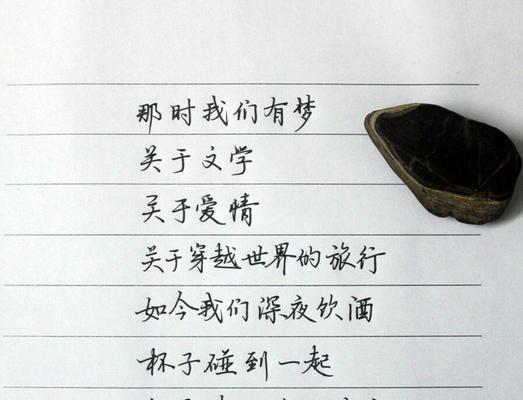 那时我们有梦
关于文学
关于爱情
关于穿越世界的旅行
如今我们深夜饮酒
杯子碰到一起